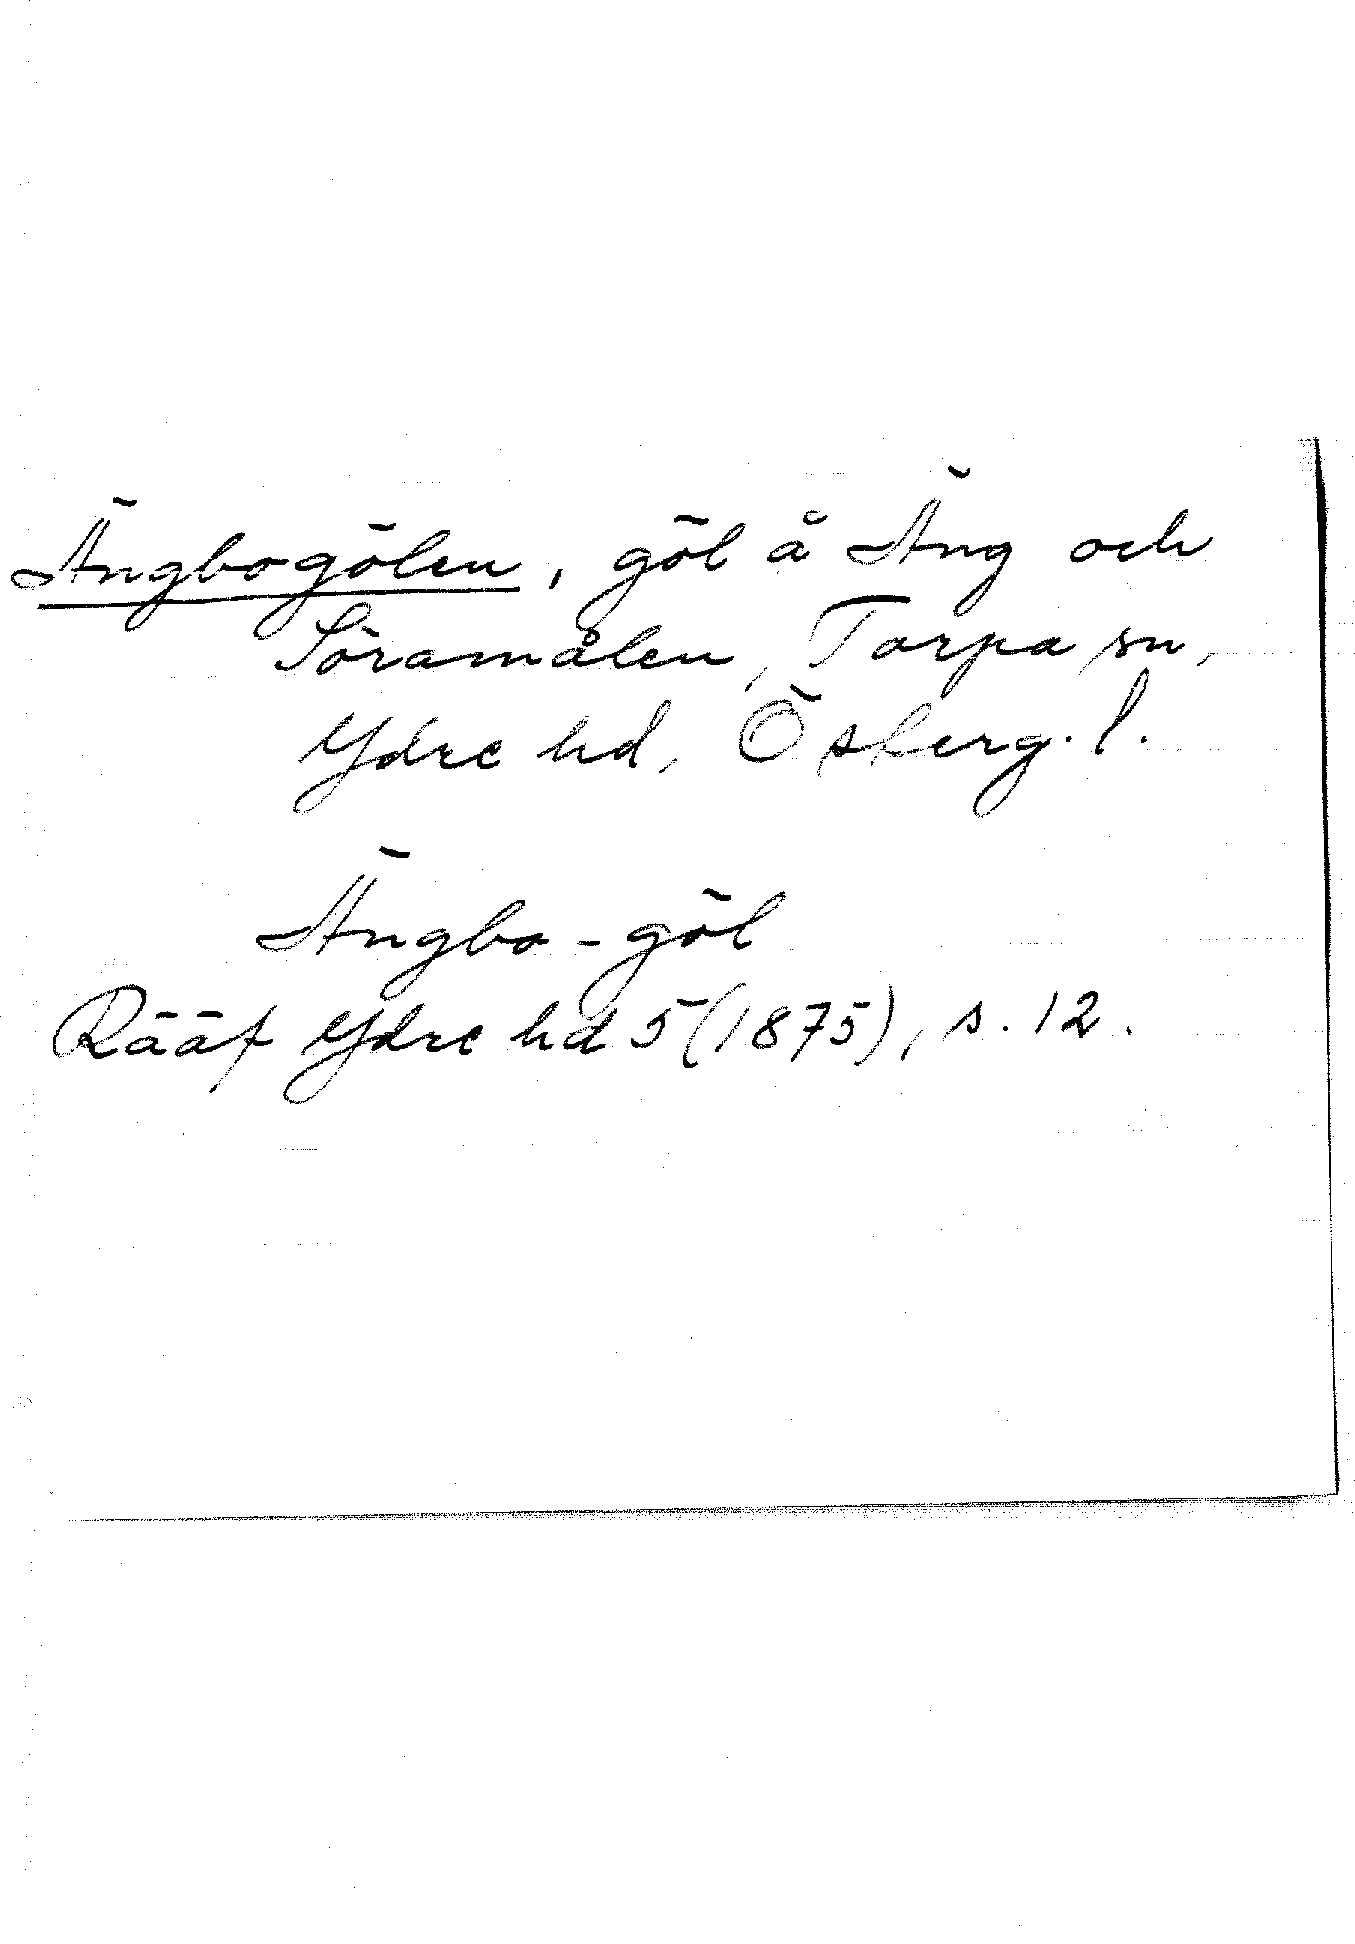 Ängbogölen, göl å Äng och
Söramålen, Torpa sn,
Ydre hd, Österg. l.
Ängbo-göl
Rääf Ydre hd 5 (1875), s. 12.